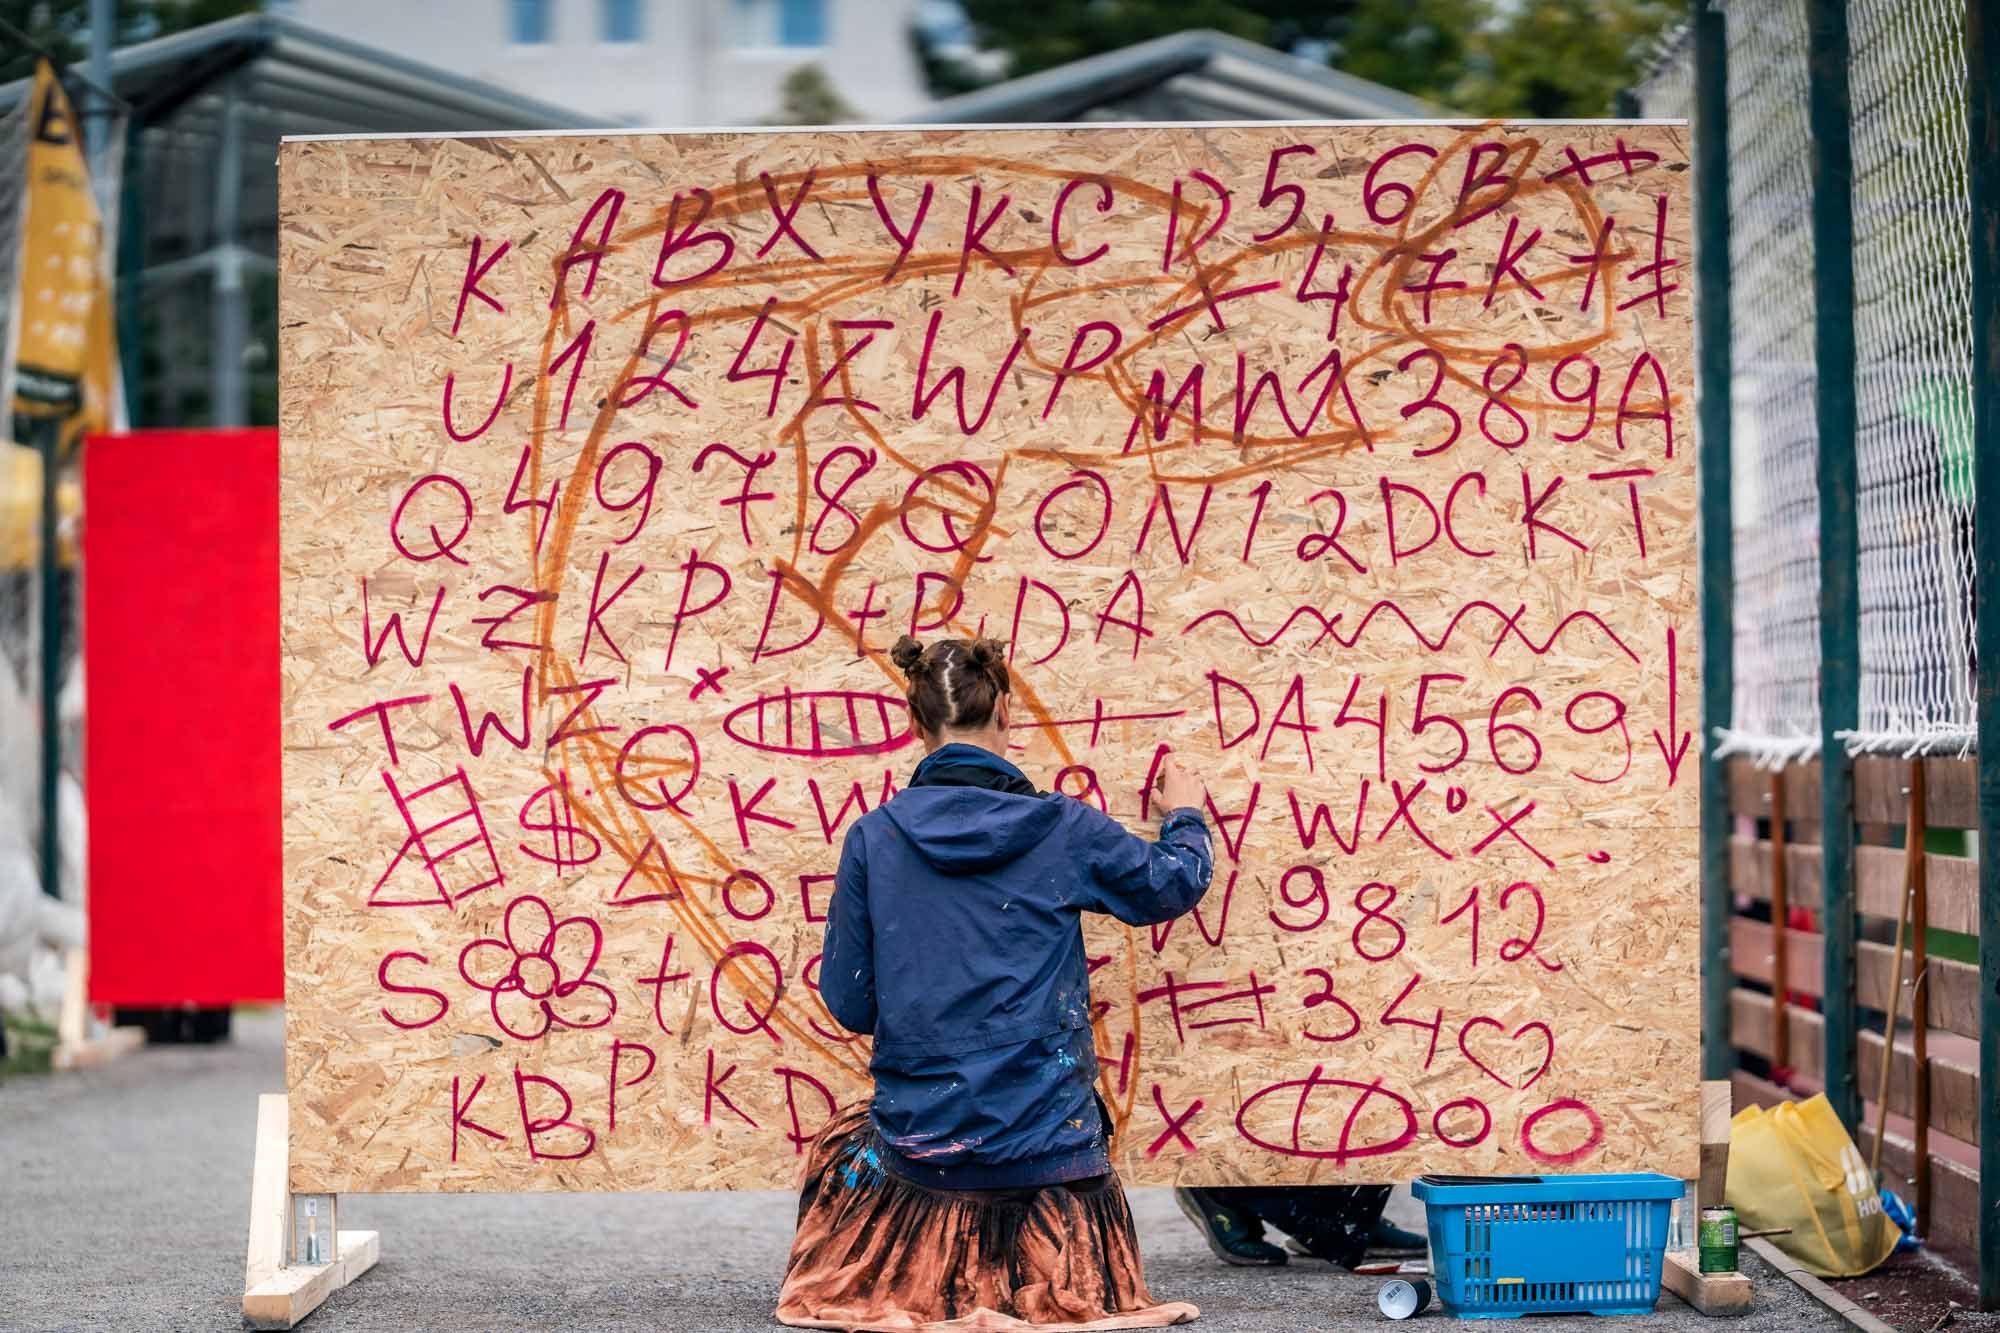 K A B X Y K C D 5,6 B
4 7 K
U 1 2 4 Z W P M W 3 8 9 A
Q 4 9 7 8 Q O N 1 2 D C K T
W Z K P D + P, D A
T W Z x DA 4 5 6 9
$ Q K W W X ° X .
Δ O W 9 8 1 2
S + Q 3 4
K B P K D X O O